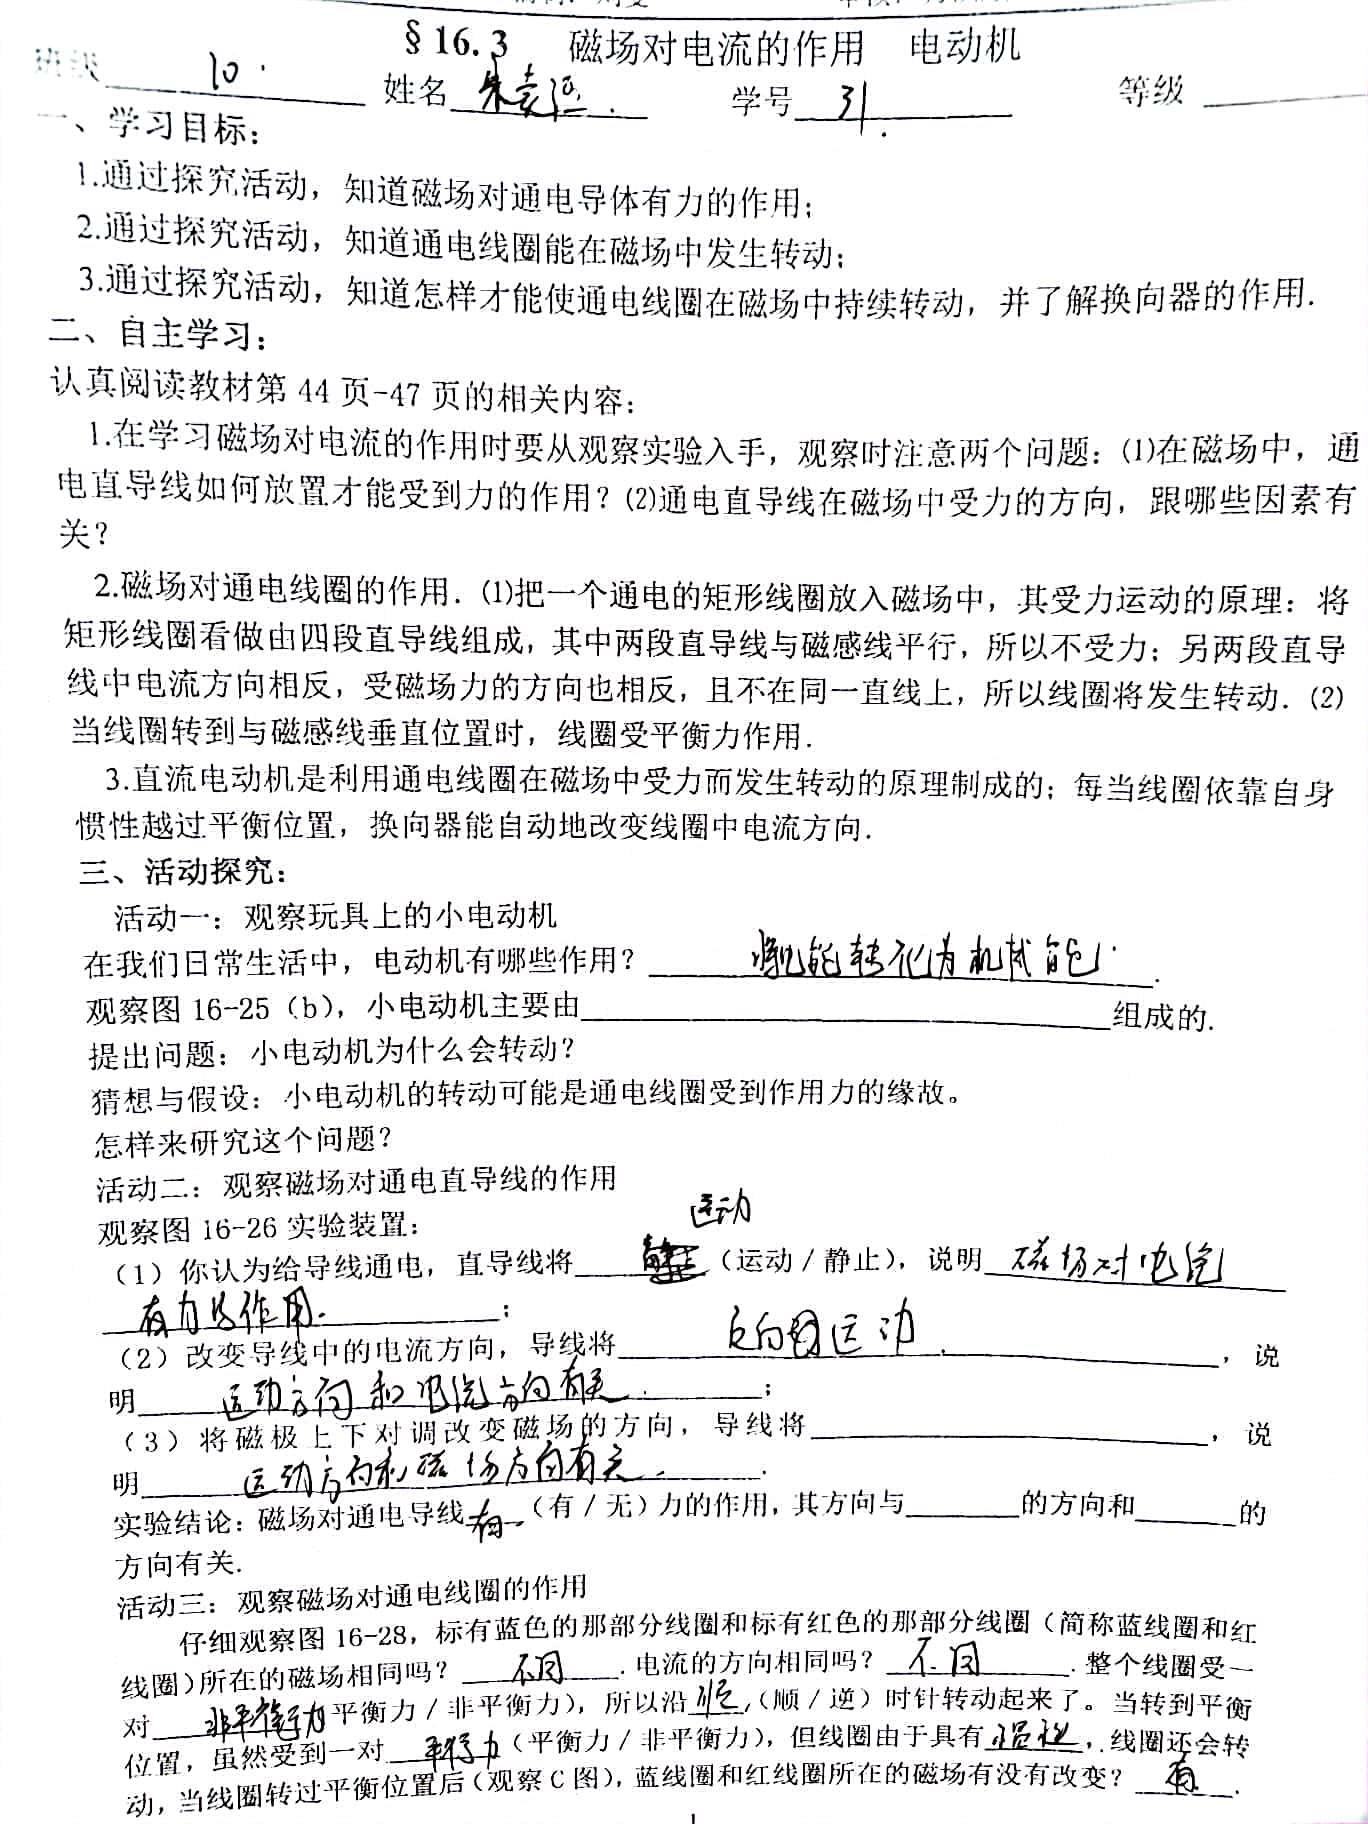 §16.3 磁场对电流的作用 电动机
班级 10. 姓名 朱 学号 31. 等级
一、学习目标：
1.通过探究活动，知道磁场对通电导体有力的作用；
2.通过探究活动，知道通电线圈能在磁场中发生转动；
3.通过探究活动，知道怎样才能使通电线圈在磁场中持续转动，并了解换向器的作用.
二、自主学习：
认真阅读教材第 44 页-47 页的相关内容：
1.在学习磁场对电流的作用时要从观察实验入手，观察时注意两个问题：⑴在磁场中，通
电直导线如何放置才能受到力的作用？⑵通电直导线在磁场中受力的方向，跟哪些因素有
关？
2.磁场对通电线圈的作用．⑴把一个通电的矩形线圈放入磁场中，其受力运动的原理：将
矩形线圈看做由四段直导线组成，其中两段直导线与磁感线平行，所以不受力；另两段直导
线中电流方向相反，受磁场力的方向也相反，且不在同一直线上，所以线圈将发生转动．⑵
当线圈转到与磁感线垂直位置时，线圈受平衡力作用.
3.直流电动机是利用通电线圈在磁场中受力而发生转动的原理制成的；每当线圈依靠自身
惯性越过平衡位置，换向器能自动地改变线圈中电流方向.
三、活动探究：
活动一：观察玩具上的小电动机
在我们日常生活中，电动机有哪些作用？ 将电能转化为机械能.
观察图 16-25（b），小电动机主要由 组成的.
提出问题：小电动机为什么会转动？
猜想与假设：小电动机的转动可能是通电线圈受到作用力的缘故。
怎样来研究这个问题？
活动二：观察磁场对通电直导线的作用
观察图 16-26 实验装置：
运动
（1）你认为给导线通电，直导线将 （运动／静止），说明 磁场对电流
有力的作用. ；
（2）改变导线中的电流方向，导线将 反向运动. ，说
明 运动方向和电流方向有关. ；
（3）将磁极上下对调改变磁场的方向，导线将 ，说
明 运动方向和磁场方向有关. .
实验结论：磁场对通电导线 有 （有／无）力的作用，其方向与 的方向和 的
方向有关.
活动三：观察磁场对通电线圈的作用
仔细观察图 16-28，标有蓝色的那部分线圈和标有红色的那部分线圈（简称蓝线圈和红
线圈）所在的磁场相同吗？ 不同 .电流的方向相同吗？ 不同 .整个线圈受一
对 非平衡力 平衡力／非平衡力），所以沿 顺 （顺／逆）时针转动起来了。当转到平衡
位置，虽然受到一对 平衡力 （平衡力／非平衡力），但线圈由于具有 惯性 ，线圈还会转
动，当线圈转过平衡位置后（观察 C 图），蓝线圈和红线圈所在的磁场有没有改变？ 有 .
1